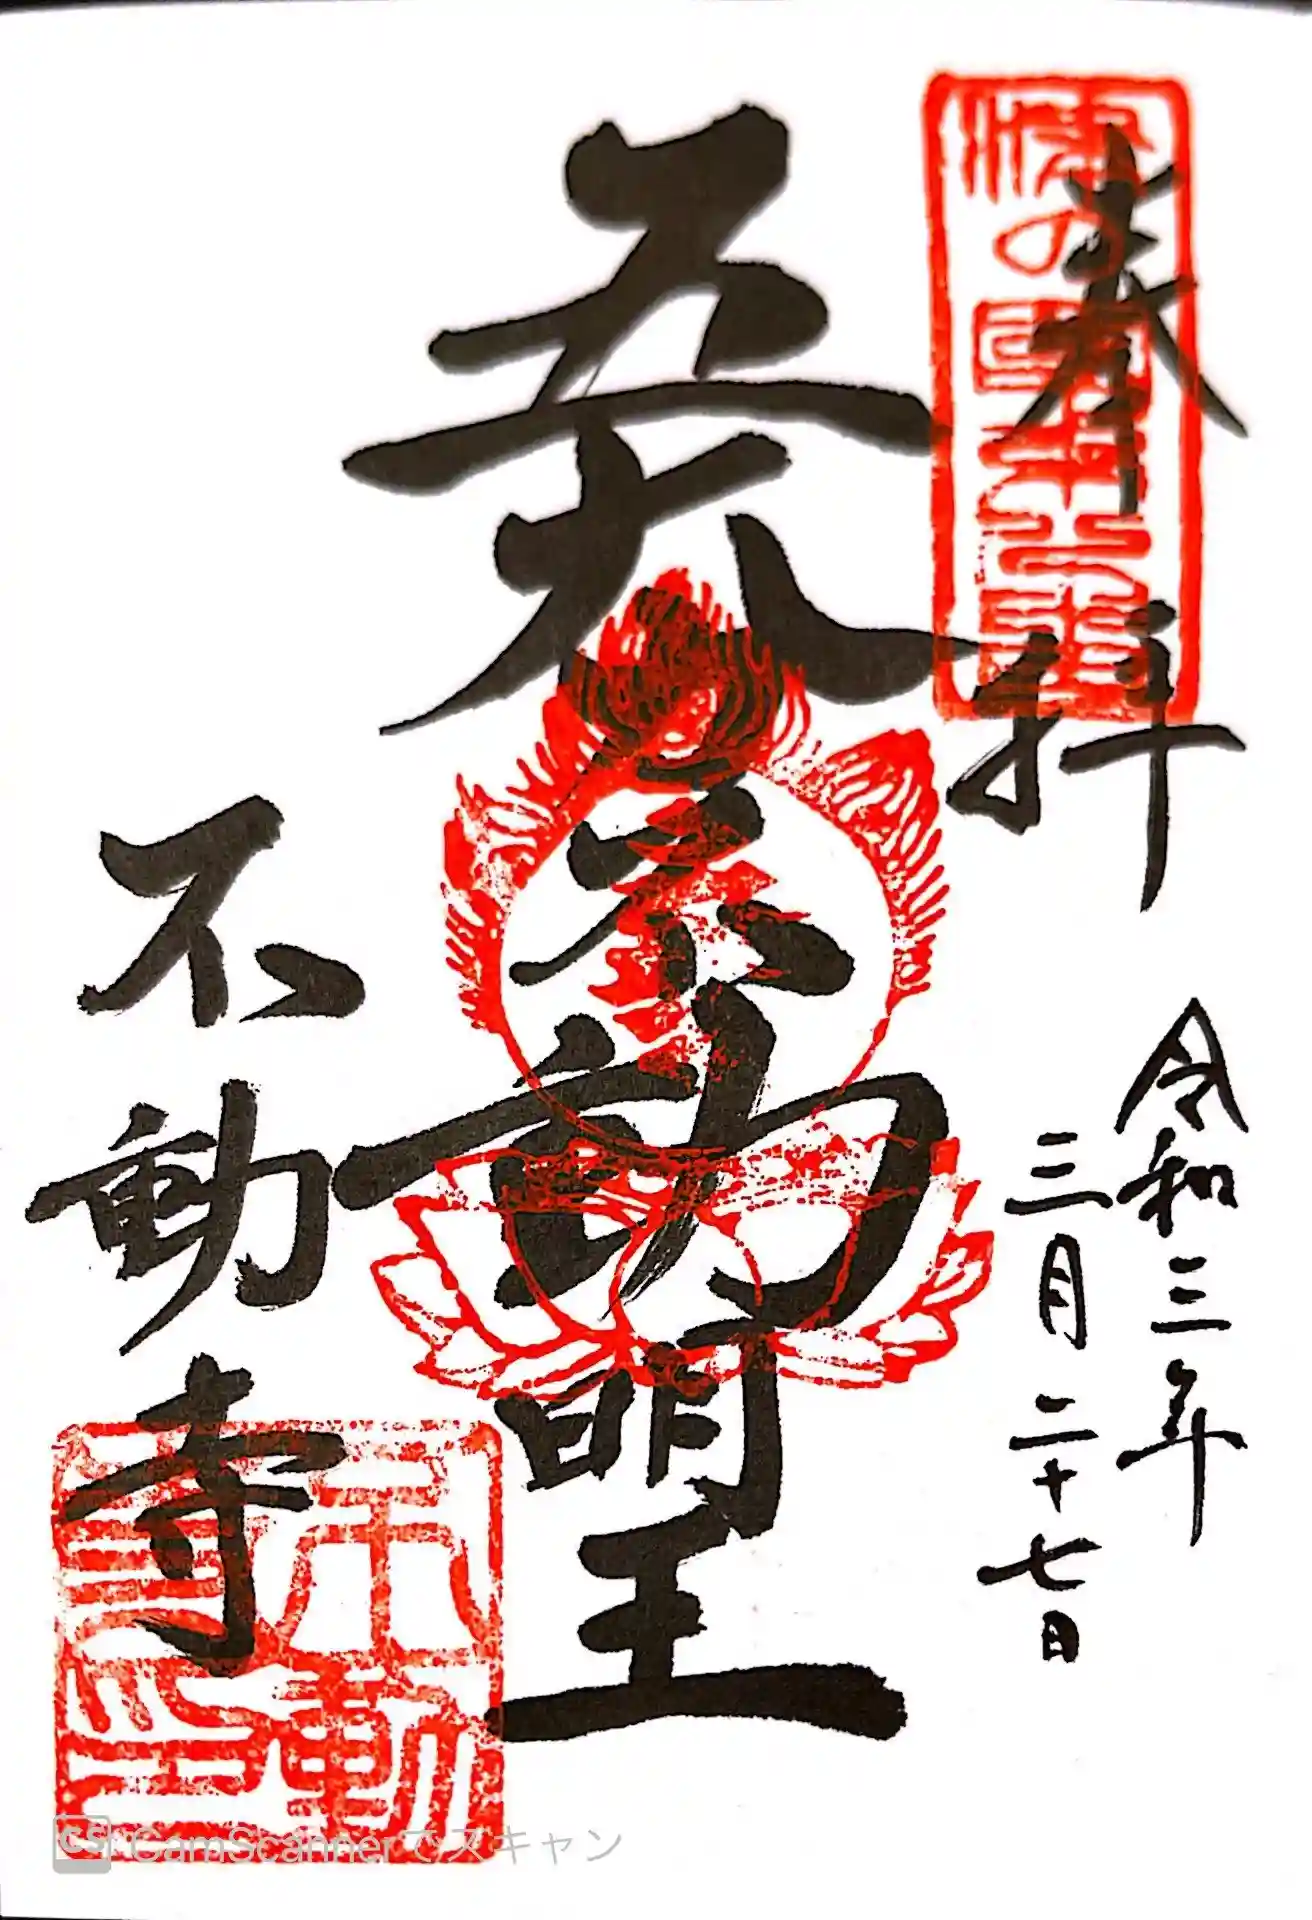 奉拝
令和三年
三月二十七日
五大不動明王
不動寺
不動
寺印
CS CamScannerでスキャン